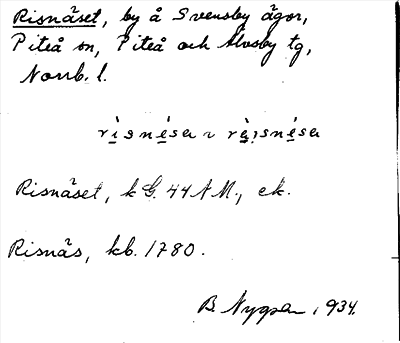 Risnäset, by å Svensby ägor,
Piteå sn, Piteå och Älvsby tg,
Norrb. l.
Risnäset, k G. 44 A M., ek.
Risnäs, kb. 1780.
B Nygren, 1934.